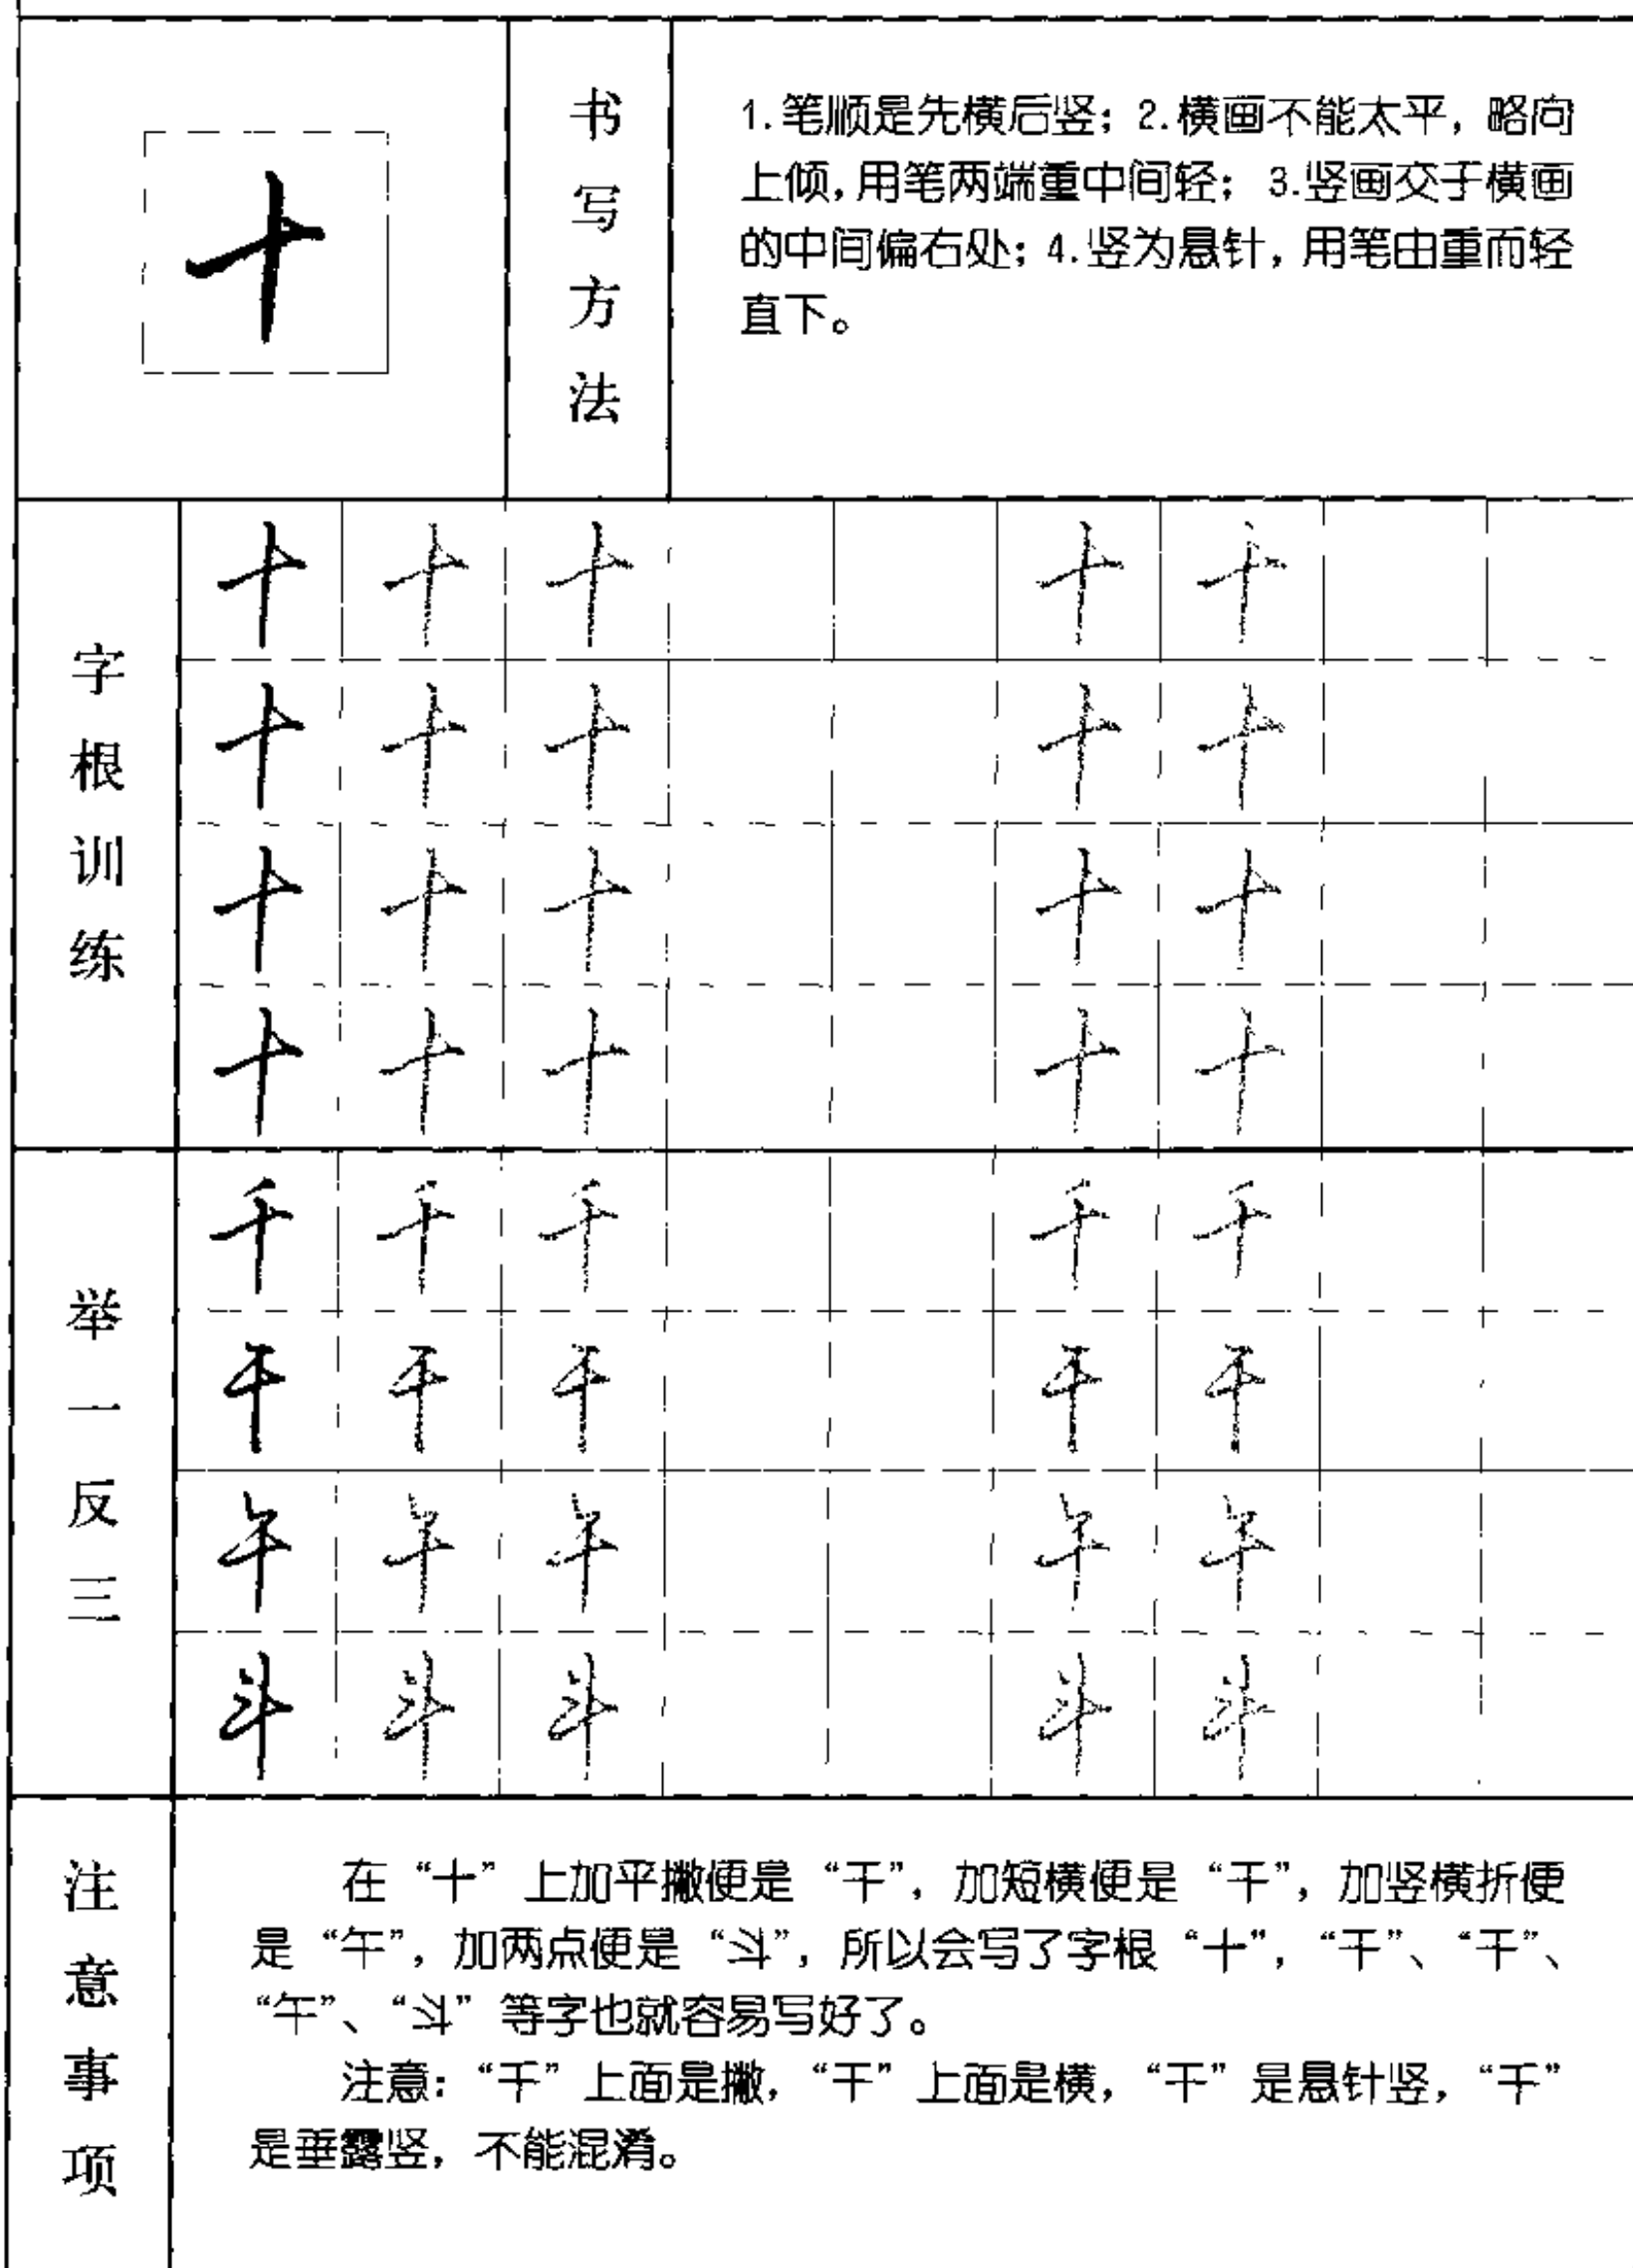 十
书写方法
1.笔顺是先横后竖；2.横画不能太平，略向
上倾，用笔两端重中间轻；3.竖画交于横画
的中间偏右处；4.竖为悬针，用笔由重而轻
直下。
字根训练
十 十 十 十 十
十 十 十 十 十
十 十 十 十 十
十 十 十 十 十
举一反三
千 千 千 千 千
干 干 干 干 干
午 午 午 午 午
斗 斗 斗 斗 斗
注意事项
在“十”上加平撇便是“千”，加短横便是“干”，加竖横折便
是“午”，加两点便是“斗”，所以会写了字根“十”，“千”、“干”、
“午”、“斗”等字也就容易写好了。
注意：“千”上面是撇，“干”上面是横，“干”是悬针竖，“千”
是垂露竖，不能混淆。